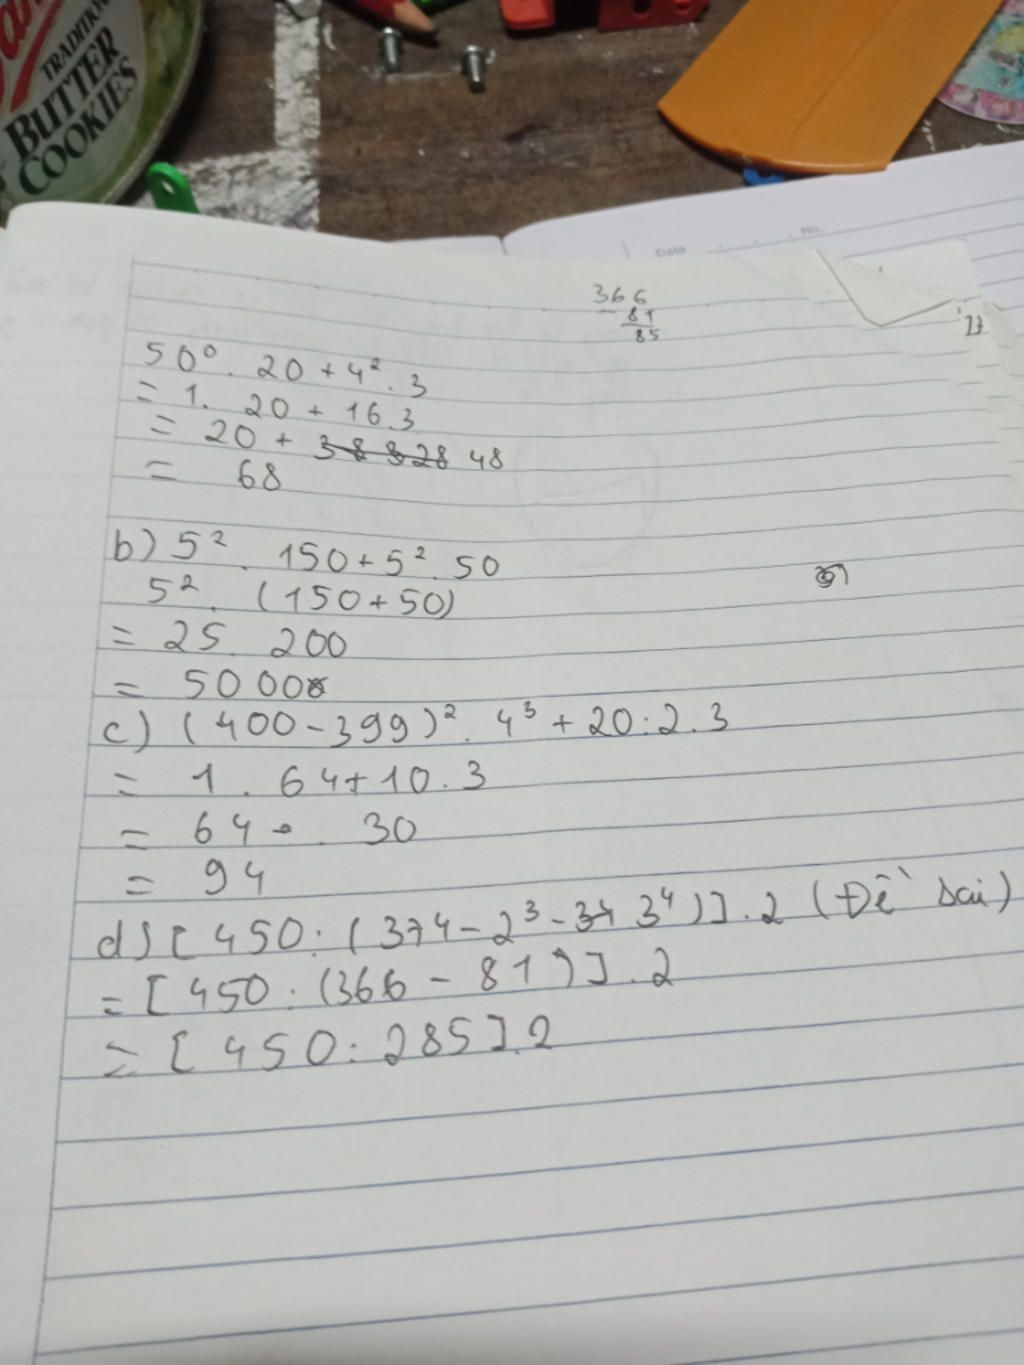 TRADITION
BUTTER
COOKIES
Date
No.
366
81
85
50⁰. 20 + 4². 3
= 1. 20 + 16.3
= 20 + 48
= 68
b) 5². 150 + 5². 50
5². (150 + 50)
= 25. 200
= 5000
c) (400 - 399)². 4³ + 20:2.3
= 1. 64 + 10.3
= 64 . 30
= 94
d) [450: (374 - 2³ - 3⁴)].2 (Đề sai)
= [450: (366 - 81)].2
= [450: 285].2